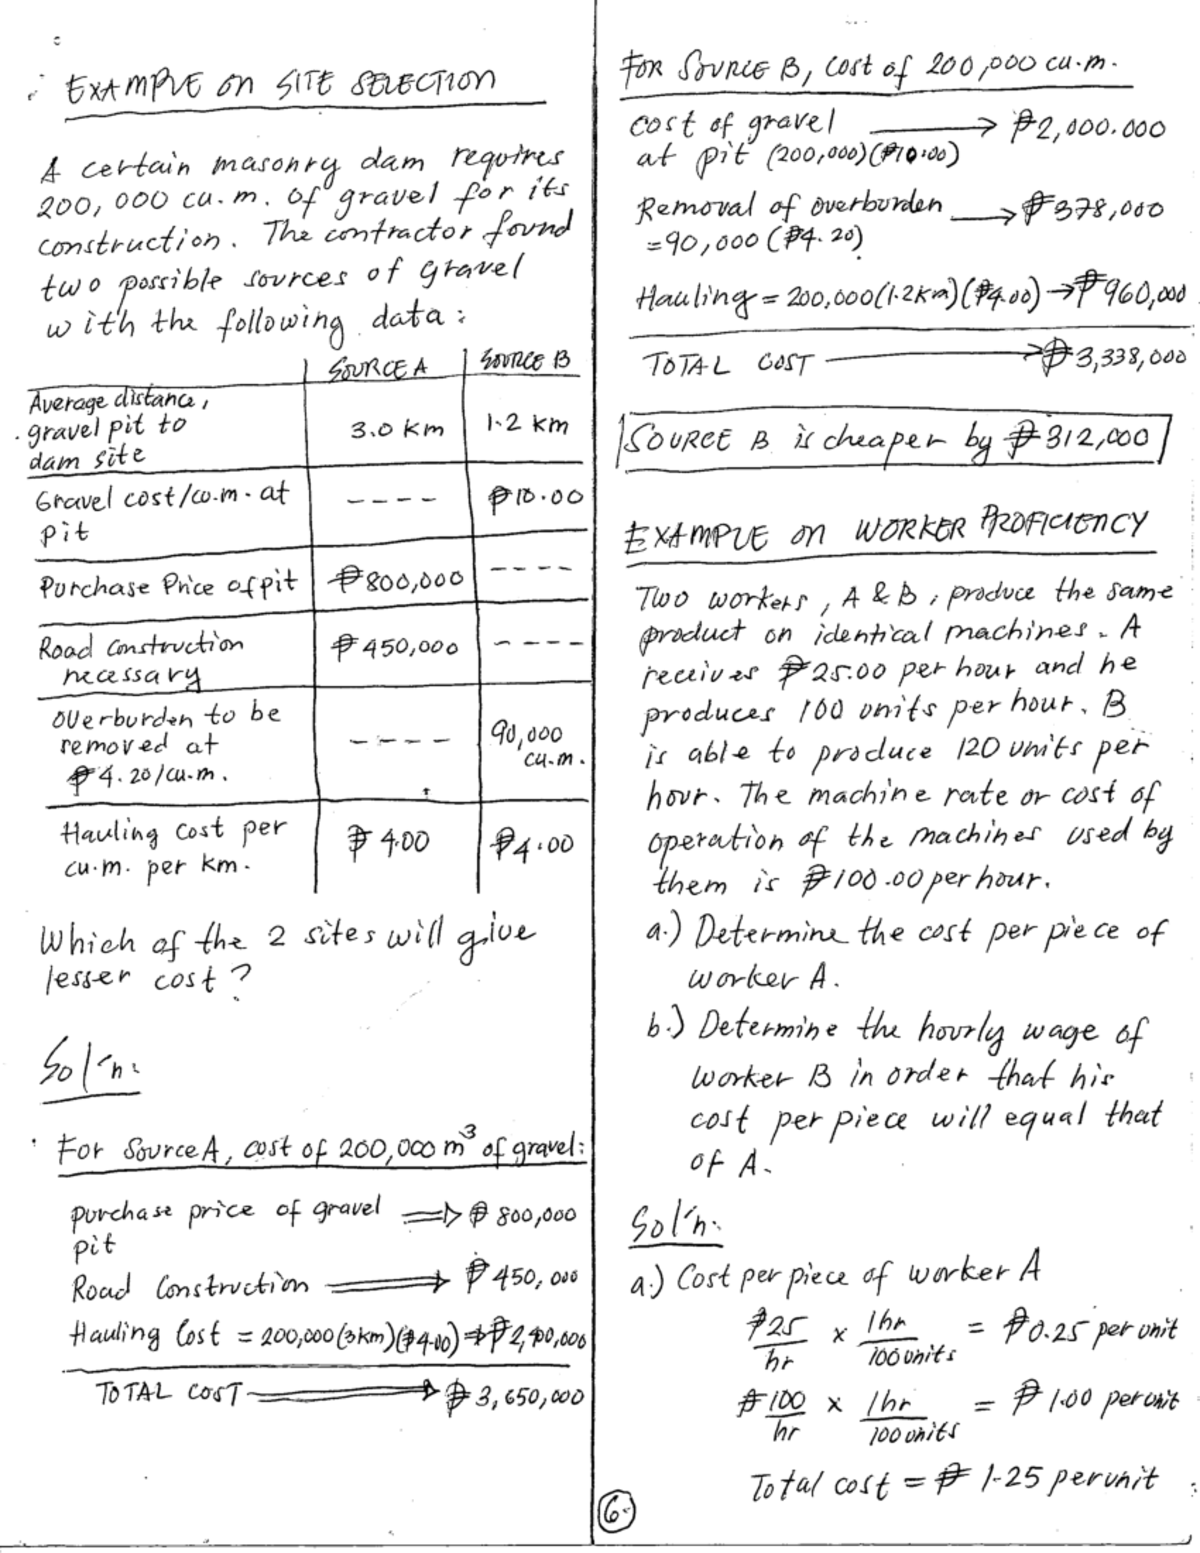 EXAMPLE ON SITE SELECTION
A certain masonry dam requires
200,000 cu.m. of gravel for its
construction. The contractor found
two possible sources of gravel
with the following data:
SOURCE A SOURCE B
Average distance,
gravel pit to
dam site
3.0 km 1.2 km
Gravel cost/cu.m. at
pit
---- ₱10.00
Purchase Price of pit ₱800,000 ----
Road Construction
necessary
₱450,000 ----
Overburden to be
removed at
₱4.20/cu.m.
---- 90,000
cu.m.
Hauling cost per
cu.m. per km.
₱4.00 ₱4.00
Which of the 2 sites will give
lesser cost?
Sol'n:
For Source A, cost of 200,000 m³ of gravel:
Purchase price of gravel ⇒ ₱800,000
pit
Road Construction ⇒ ₱450,000
Hauling Cost = 200,000(3km)(₱4.00) ⇒ ₱2,400,000
TOTAL COST ⇒ ₱3,650,000
FOR SOURCE B, cost of 200,000 cu.m.
cost of gravel → ₱2,000.000
at pit (200,000)(₱10.00)
Removal of overburden → ₱378,000
=90,000 (₱4.20)
Hauling = 200,000(1.2km)(₱4.00) → ₱960,000
TOTAL COST → ₱3,338,000
SOURCE B is cheaper by ₱312,000
EXAMPLE ON WORKER PROFICIENCY
Two workers, A & B, produce the same
product on identical machines. A
receives ₱25.00 per hour and he
produces 100 units per hour. B
is able to produce 120 units per
hour. The machine rate or cost of
operation of the machines used by
them is ₱100.00 per hour.
a.) Determine the cost per piece of
worker A.
b.) Determine the hourly wage of
worker B in order that his
cost per piece will equal that
of A.
Sol'n:
a.) Cost per piece of worker A
₱25/hr x 1hr/100 units = ₱0.25 per unit
₱100/hr x 1hr/100 units = ₱1.00 per unit
Total cost = ₱1.25 per unit
6